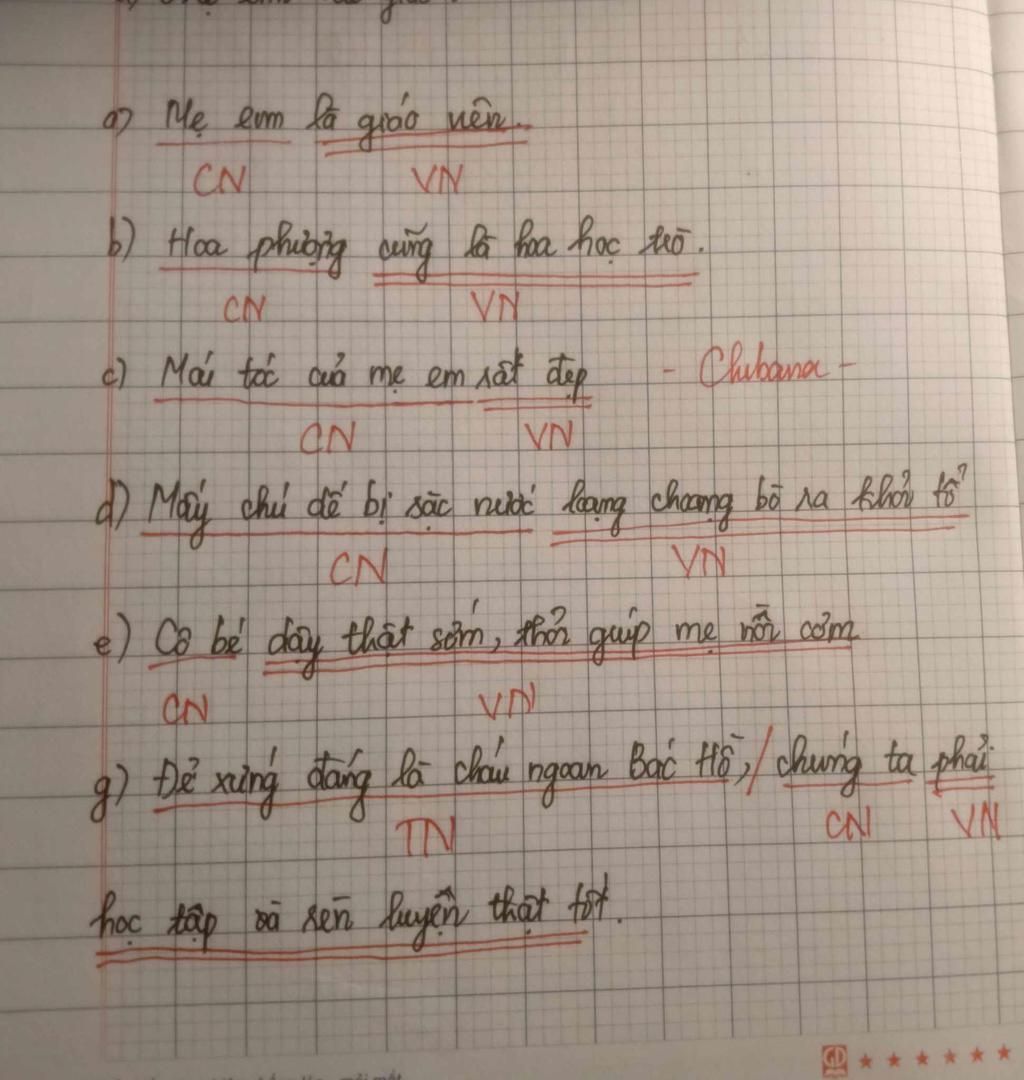 a) Mẹ em là giáo viên.
CN VN
b) Hoa phượng cũng là hoa học trò.
CN VN
c) Mái tóc của mẹ em rất đẹp - Chubana -
CN VN
d) Mấy chú dế bị sặc nước loạng choạng bò ra khỏi tổ
CN VN
e) Cô bé dậy thật sớm, thổi giúp mẹ nồi cơm
CN VN
g) Để xứng đáng là cháu ngoan Bác Hồ, / chúng ta phải
TN CN VN
học tập và rèn luyện thật tốt.
GD